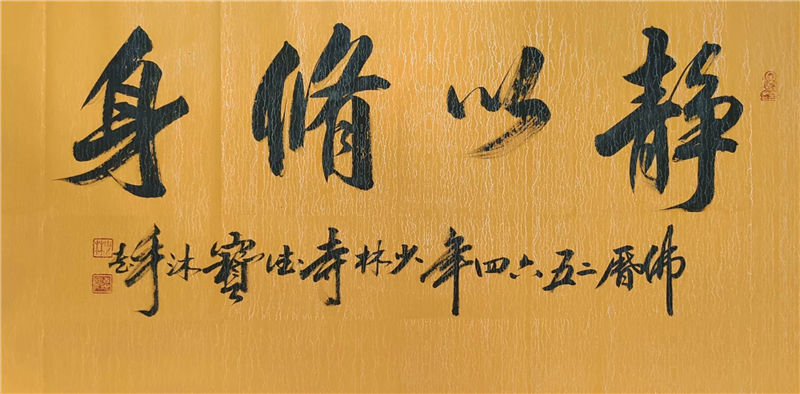 静以脩身
佛曆二五六四年少林寺德寶沐手書